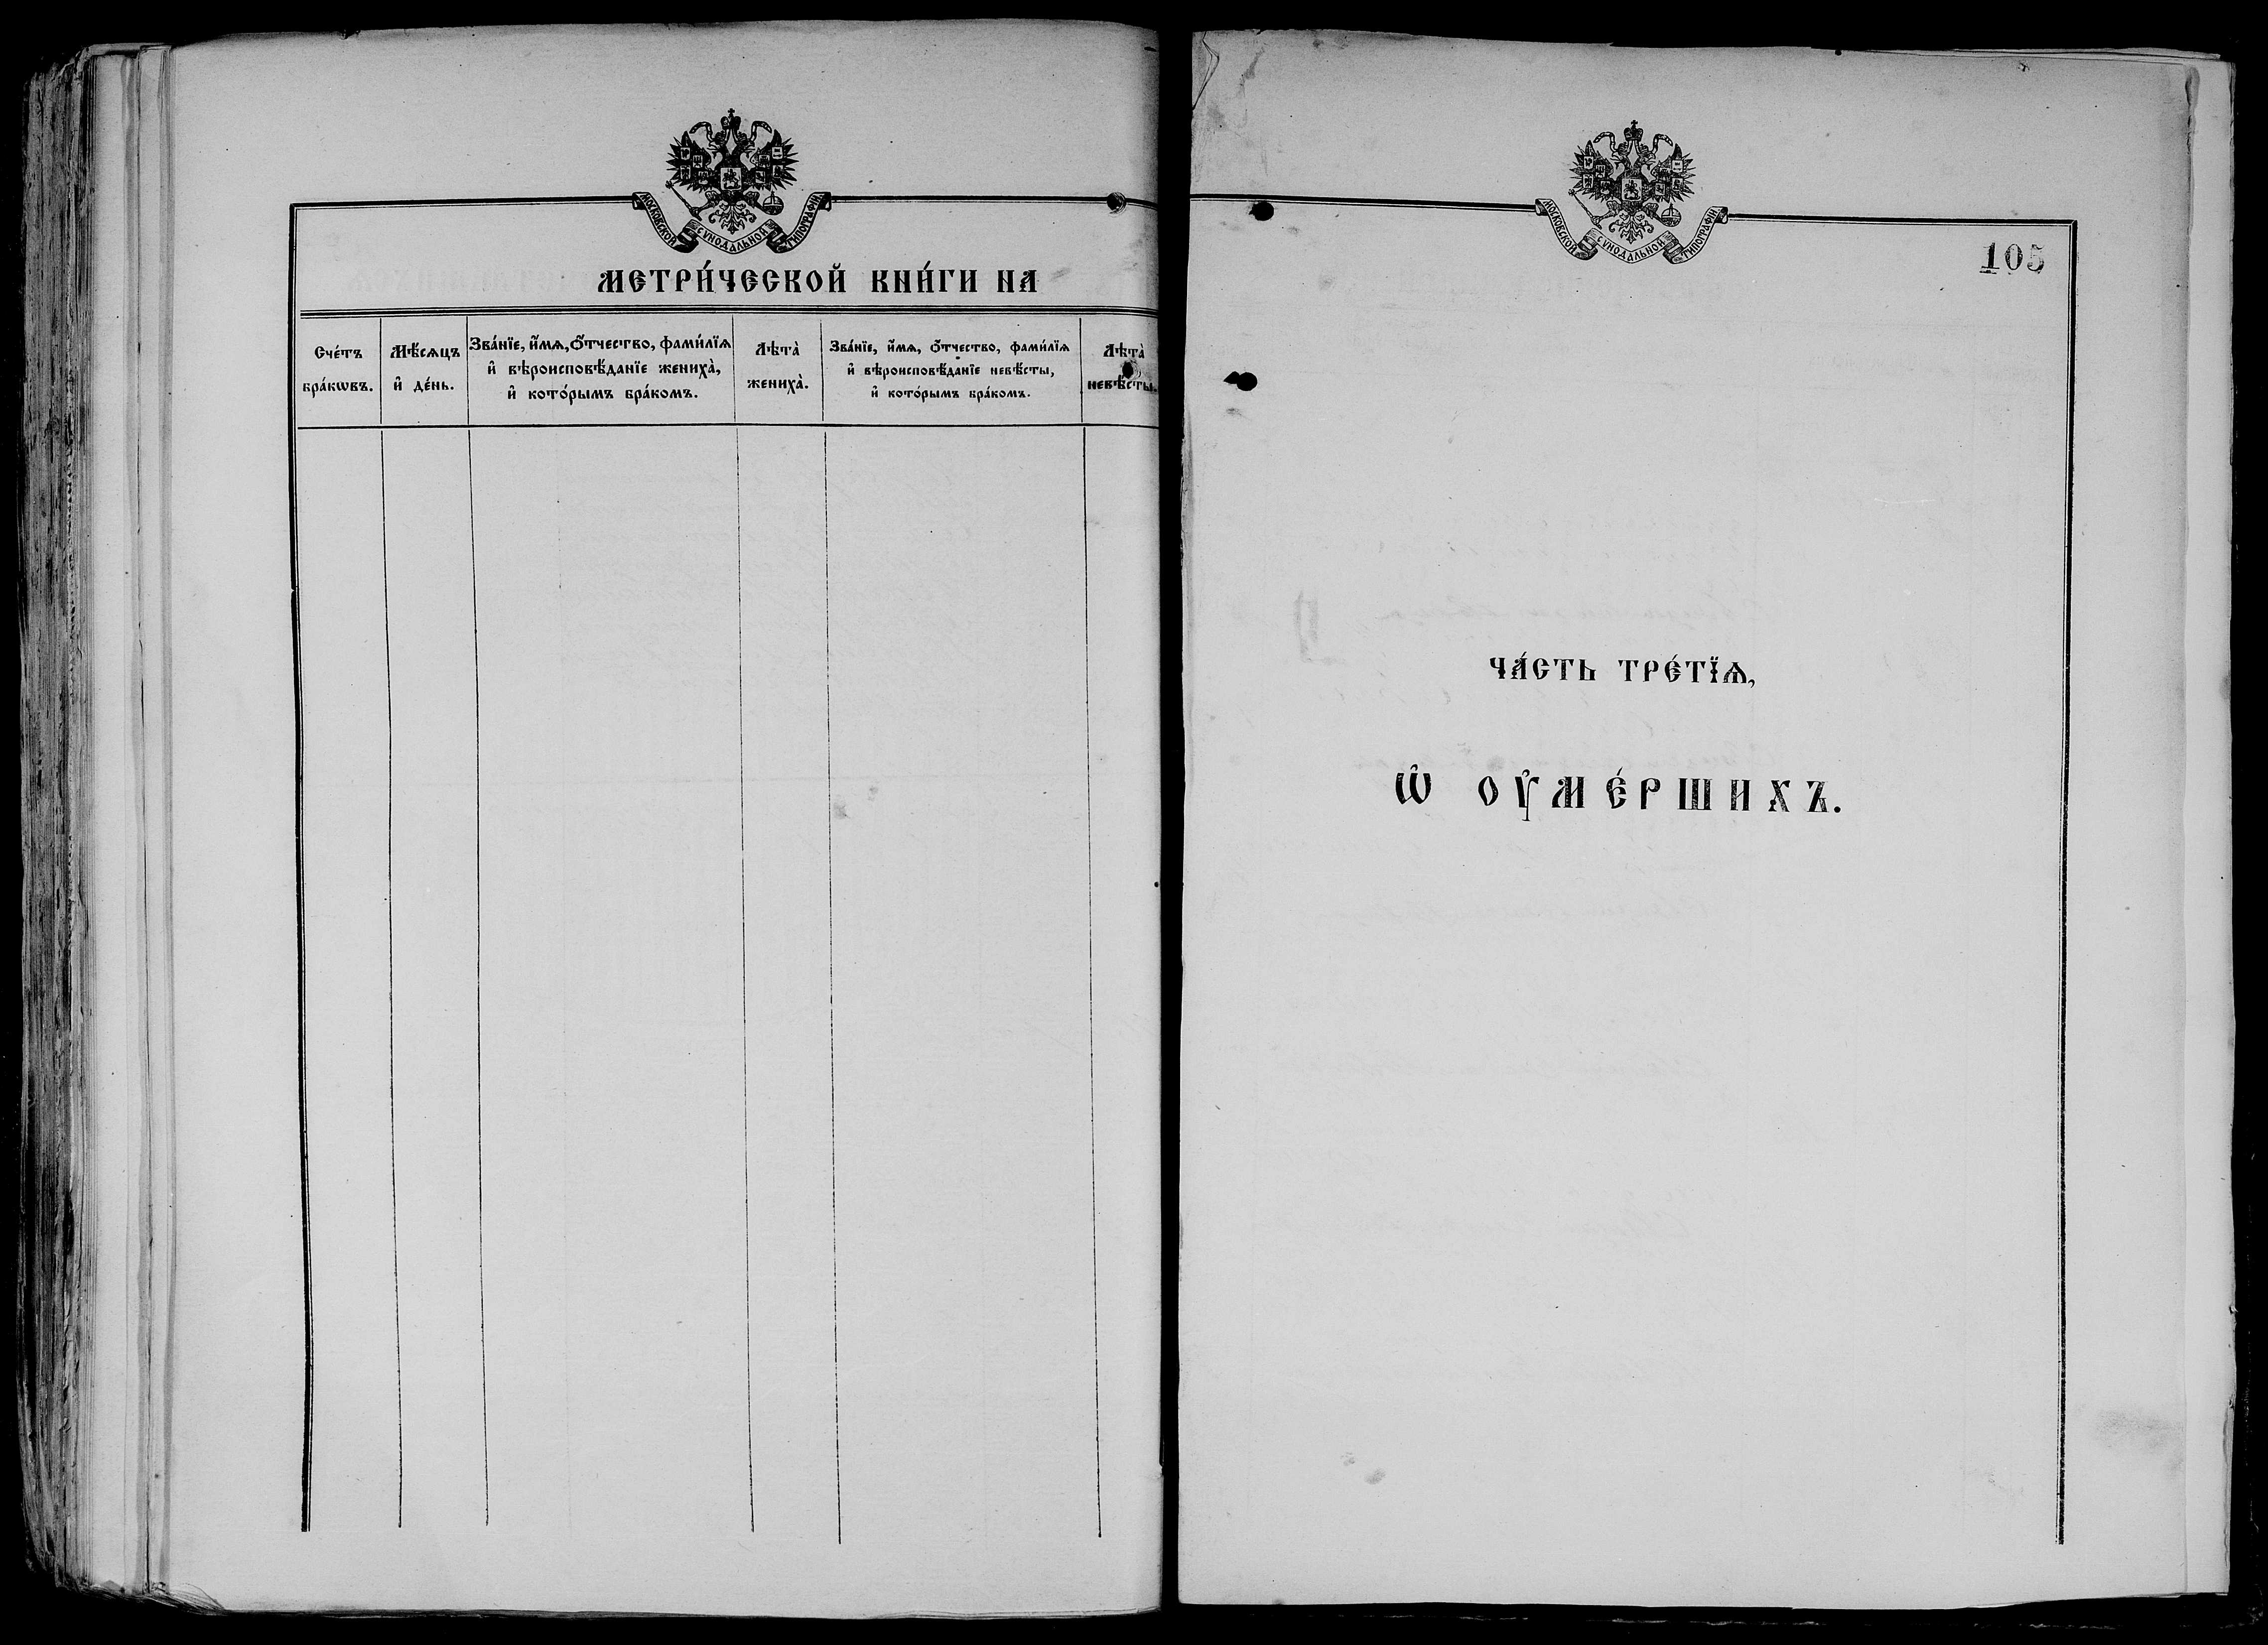 МОСКОВСКОЙ СѴНОДАЛЬНОЙ ТИПОГРАФІИ
МЕТРИ́ЧЕСКОЙ КНИ́ГИ НА
Сче́тъ
бра́кωвъ.
Мѣ́сѧцъ
и҆ де́нь.
Зва́нїе, и҆́мѧ, ѻ҆́тчество, фами́лїѧ
и҆ вѣроисповѣ́данїе жениха̀,
и҆ кото́рымъ бра́комъ.
Лѣта̀
жениха̀.
Зва́нїе, и҆́мѧ, ѻ҆́тчество, фами́лїѧ
и҆ вѣроисповѣ́данїе невѣ́сты,
и҆ кото́рымъ бра́комъ.
Лѣта̀
невѣ́сты.
МОСКОВСКОЙ СѴНОДАЛЬНОЙ ТИПОГРАФІИ
105
ЧА́СТЬ ТРЕ́ТЇѦ,
Ѡ҆ ОУ҆МЕ́РШИХЪ.